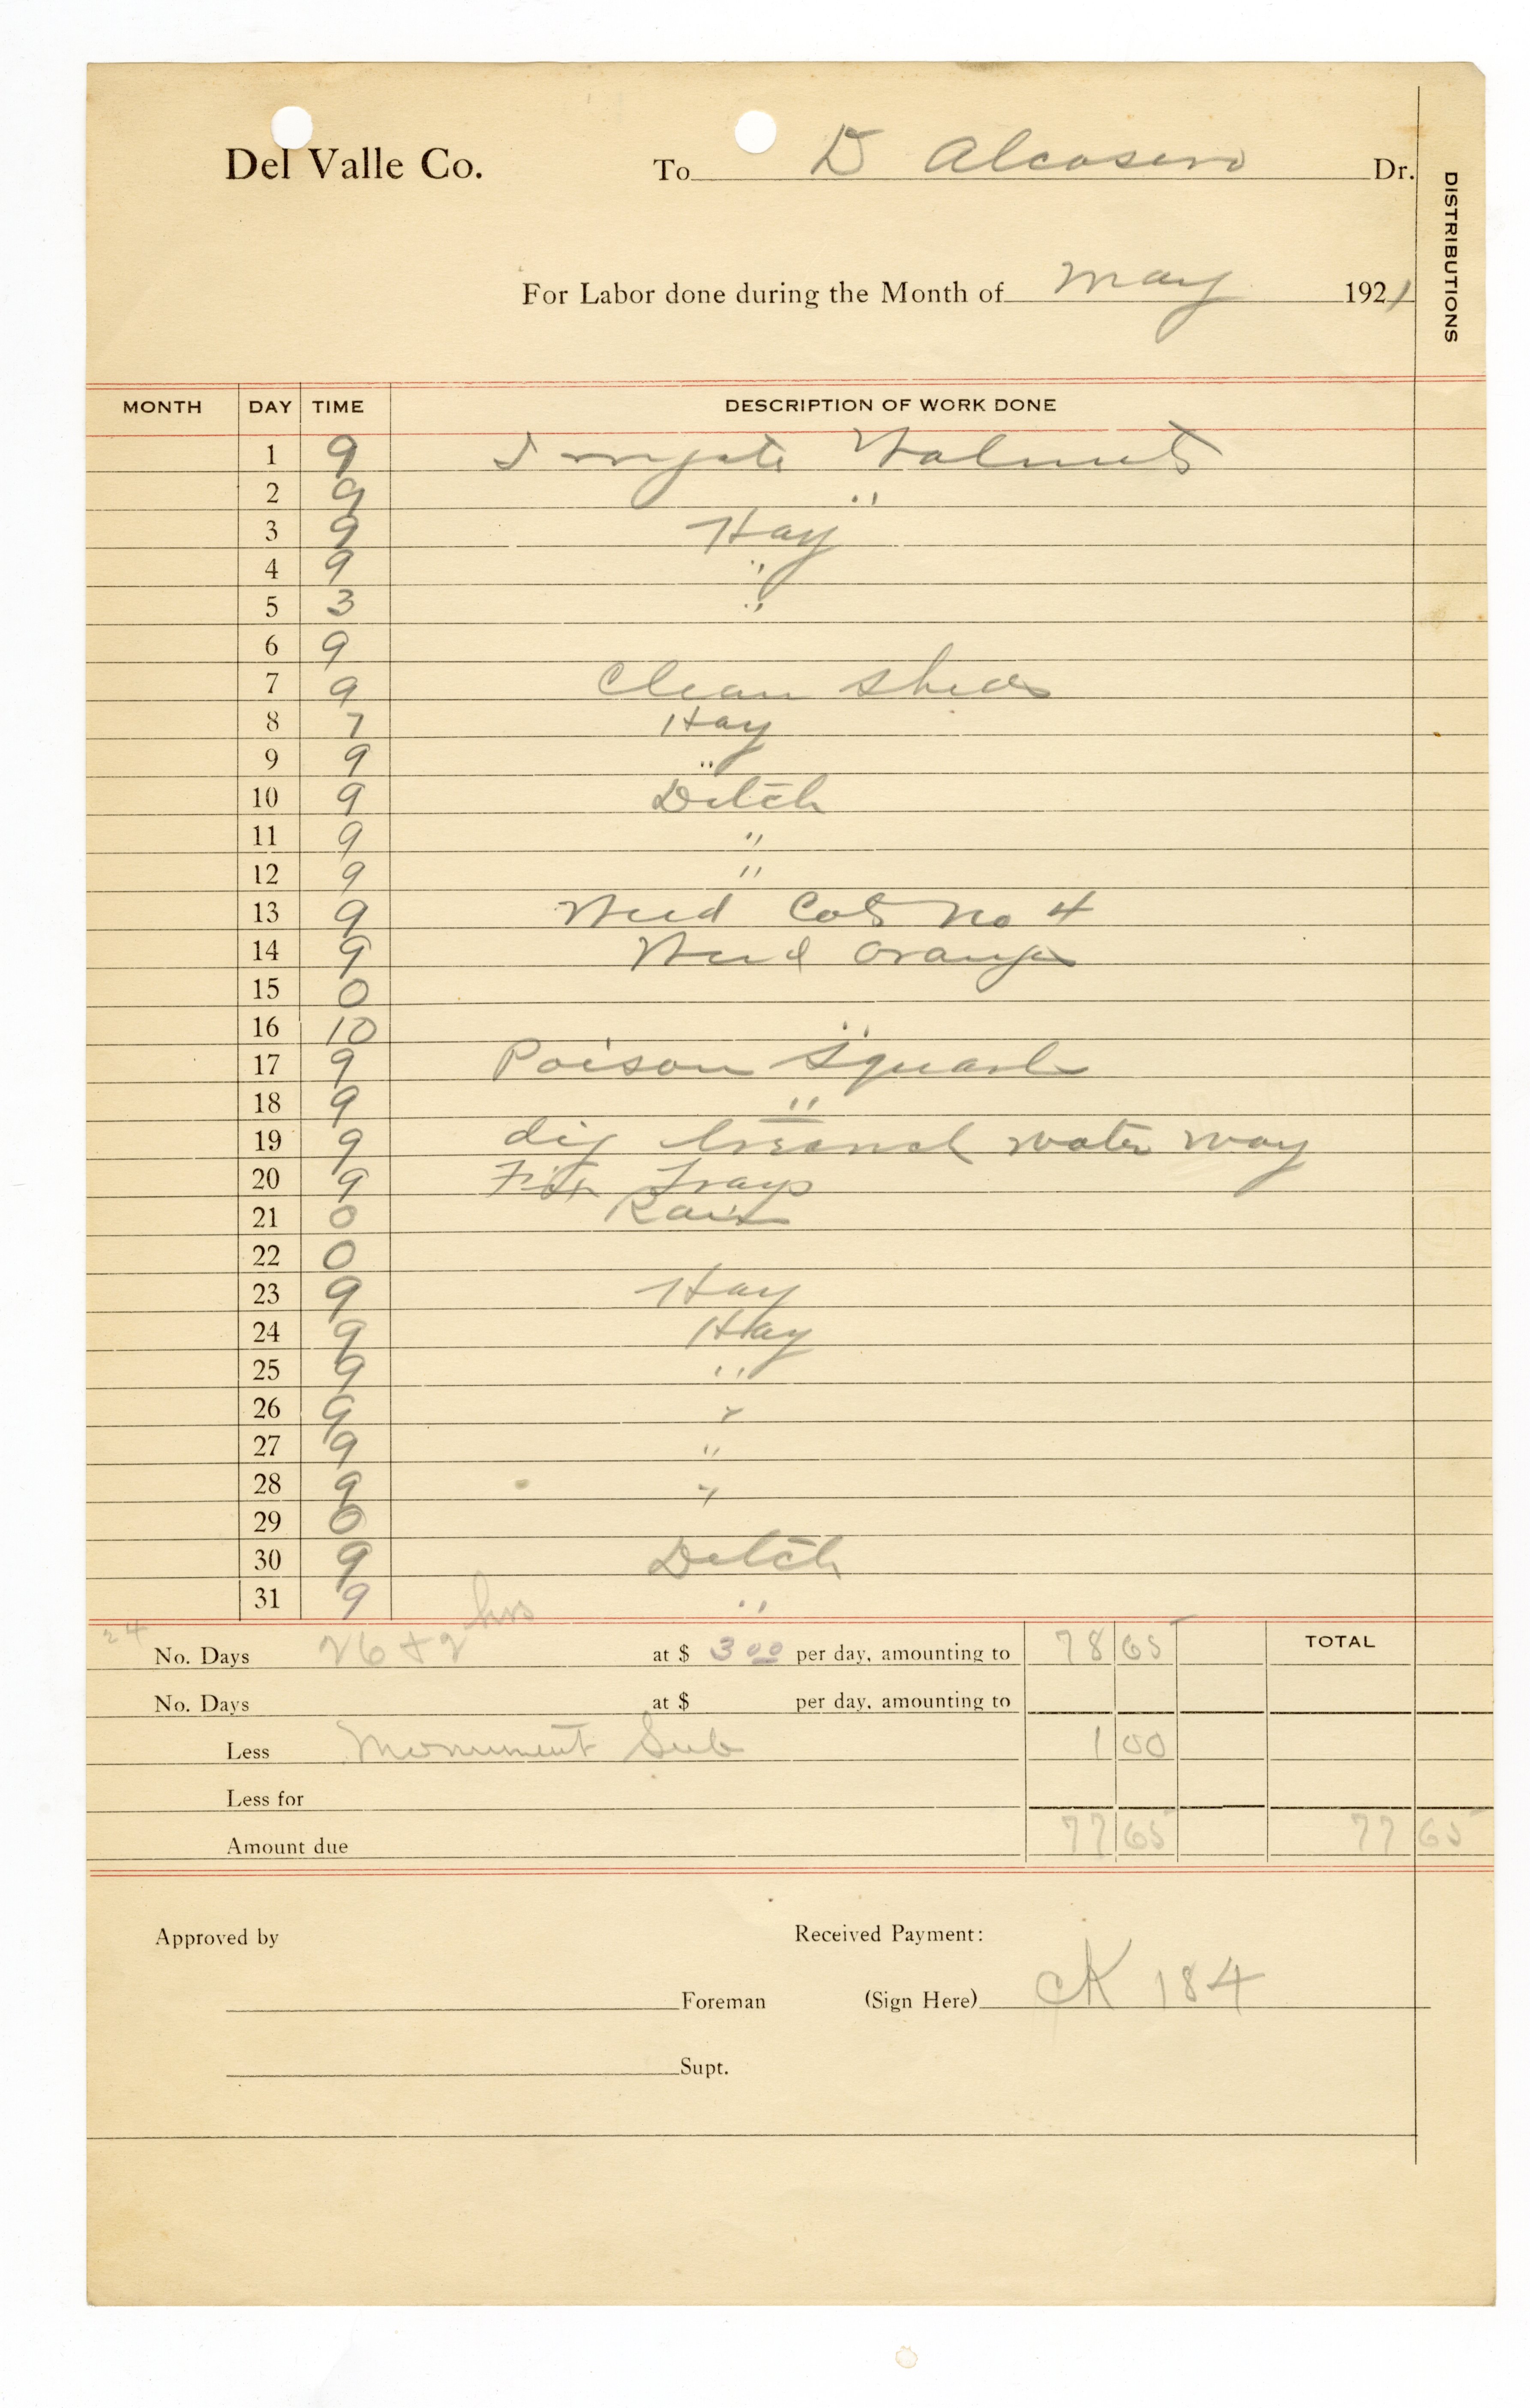 Del Valle Co. To D Alcosero Dr.
DISTRIBUTIONS
For Labor done during the Month of May 1921
MONTH DAY TIME DESCRIPTION OF WORK DONE
1 9 Irrigate Walnuts
2 9 "
3 9 Hay
4 9 "
5 3 "
6 9
7 9 Clean Sheds
8 7 Hay
9 9 "
10 9 Ditch
11 9 "
12 9 "
13 9 Weed Cots No 4
14 9 Weed Oranges
15 0
16 10 "
17 9 Poison Squarls
18 9 "
19 9 dig water way
20 9 Fix Trays
21 0 Rain
22 0
23 9 Hay
24 9 Hay
25 9 "
26 9 "
27 9 "
28 9 "
29 0
30 9 Ditch
31 9 "
24 No. Days 26 + 2 hrs at $ 3 00 per day, amounting to 78 65 TOTAL
No. Days at $ per day, amounting to
Less Monument Sub 1 00
Less for
Amount due 77 65 77 65
Approved by Received Payment:
Foreman (Sign Here) CK 184
Supt.